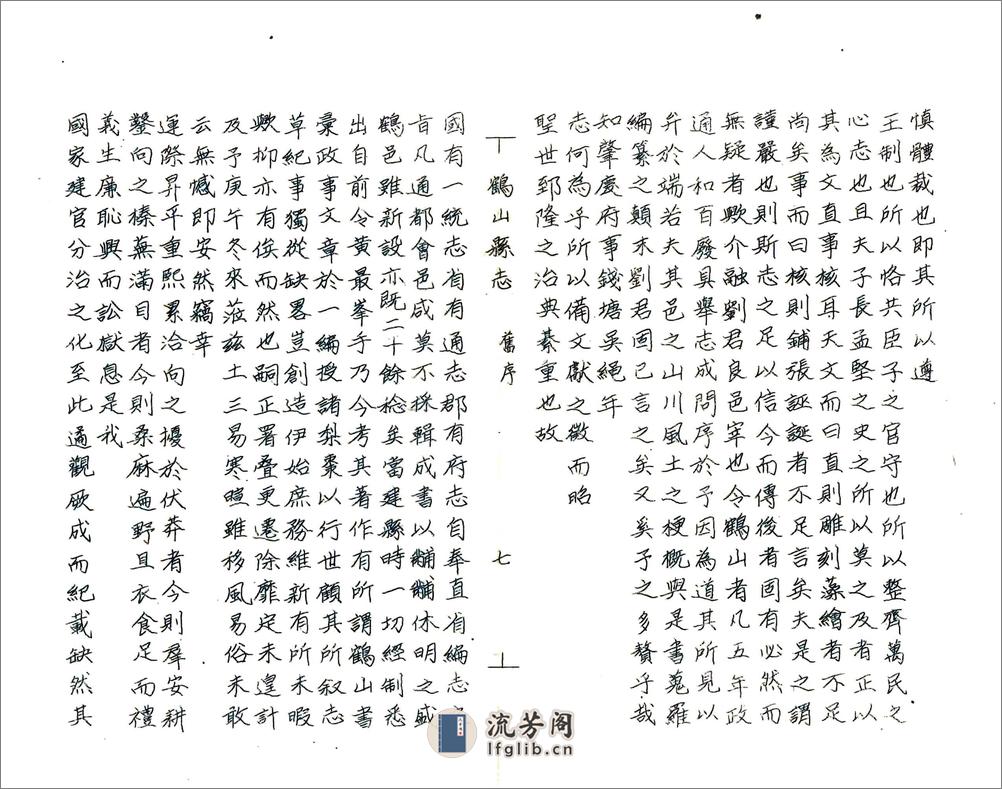 慎體裁也即其所以遵
王制也所以恪共臣子之官守也所以整齊萬民之
心志也且夫子長孟堅之史之所以莫之及者正以
其為文直事核耳夫文而曰直則雕刻藻繪者不足
尚矣事而曰核則鋪張誕者不足言矣夫是之謂
謹嚴也則斯志之足以信今而傳後者固有必然而
無疑者歟介融劉君良邑宰也令鶴山者凡五年政
通人和百廢具舉志成問序於予因為道其所見以
弁於端若夫其邑之山川風土之梗概與是書蒐羅
編纂之顛末劉君固已言之矣又奚予之多贅乎哉
知肇慶府事錢塘吳繩年
志何為乎所以備文獻之徵而昭
聖世郅隆之治典綦重也故
鶴山縣志 舊序 七
國有一統志省有通志郡有府志自奉直省編志之
旨凡通都會邑咸莫不採輯成書以黼黻休明之盛
鶴邑雖新設亦既二十餘稔矣當建縣時一切經制悉
出自前令黃最峯手乃今考其著作有所謂鶴山書
彙政事文章於一編授諸梨棗以行世顧其所叙志
草紀事獨從缺畧豈創造伊始庶務維新有所未暇
歟抑亦有俟而然也嗣正署疊更遷除靡定未遑計
及予庚午冬來蒞茲土三易寒暄雖移風易俗未敢
云無憾即安然竊幸
運際昇平重熙累洽向之擾於伏莽者今則羣安耕
鑿向之榛蕪滿目者今則桑麻遍野且衣食足而禮
義生廉恥興而訟獄息是我
國家建官分治之化至此遹觀厥成而紀載缺然其
流芳阁
lfglib.cn